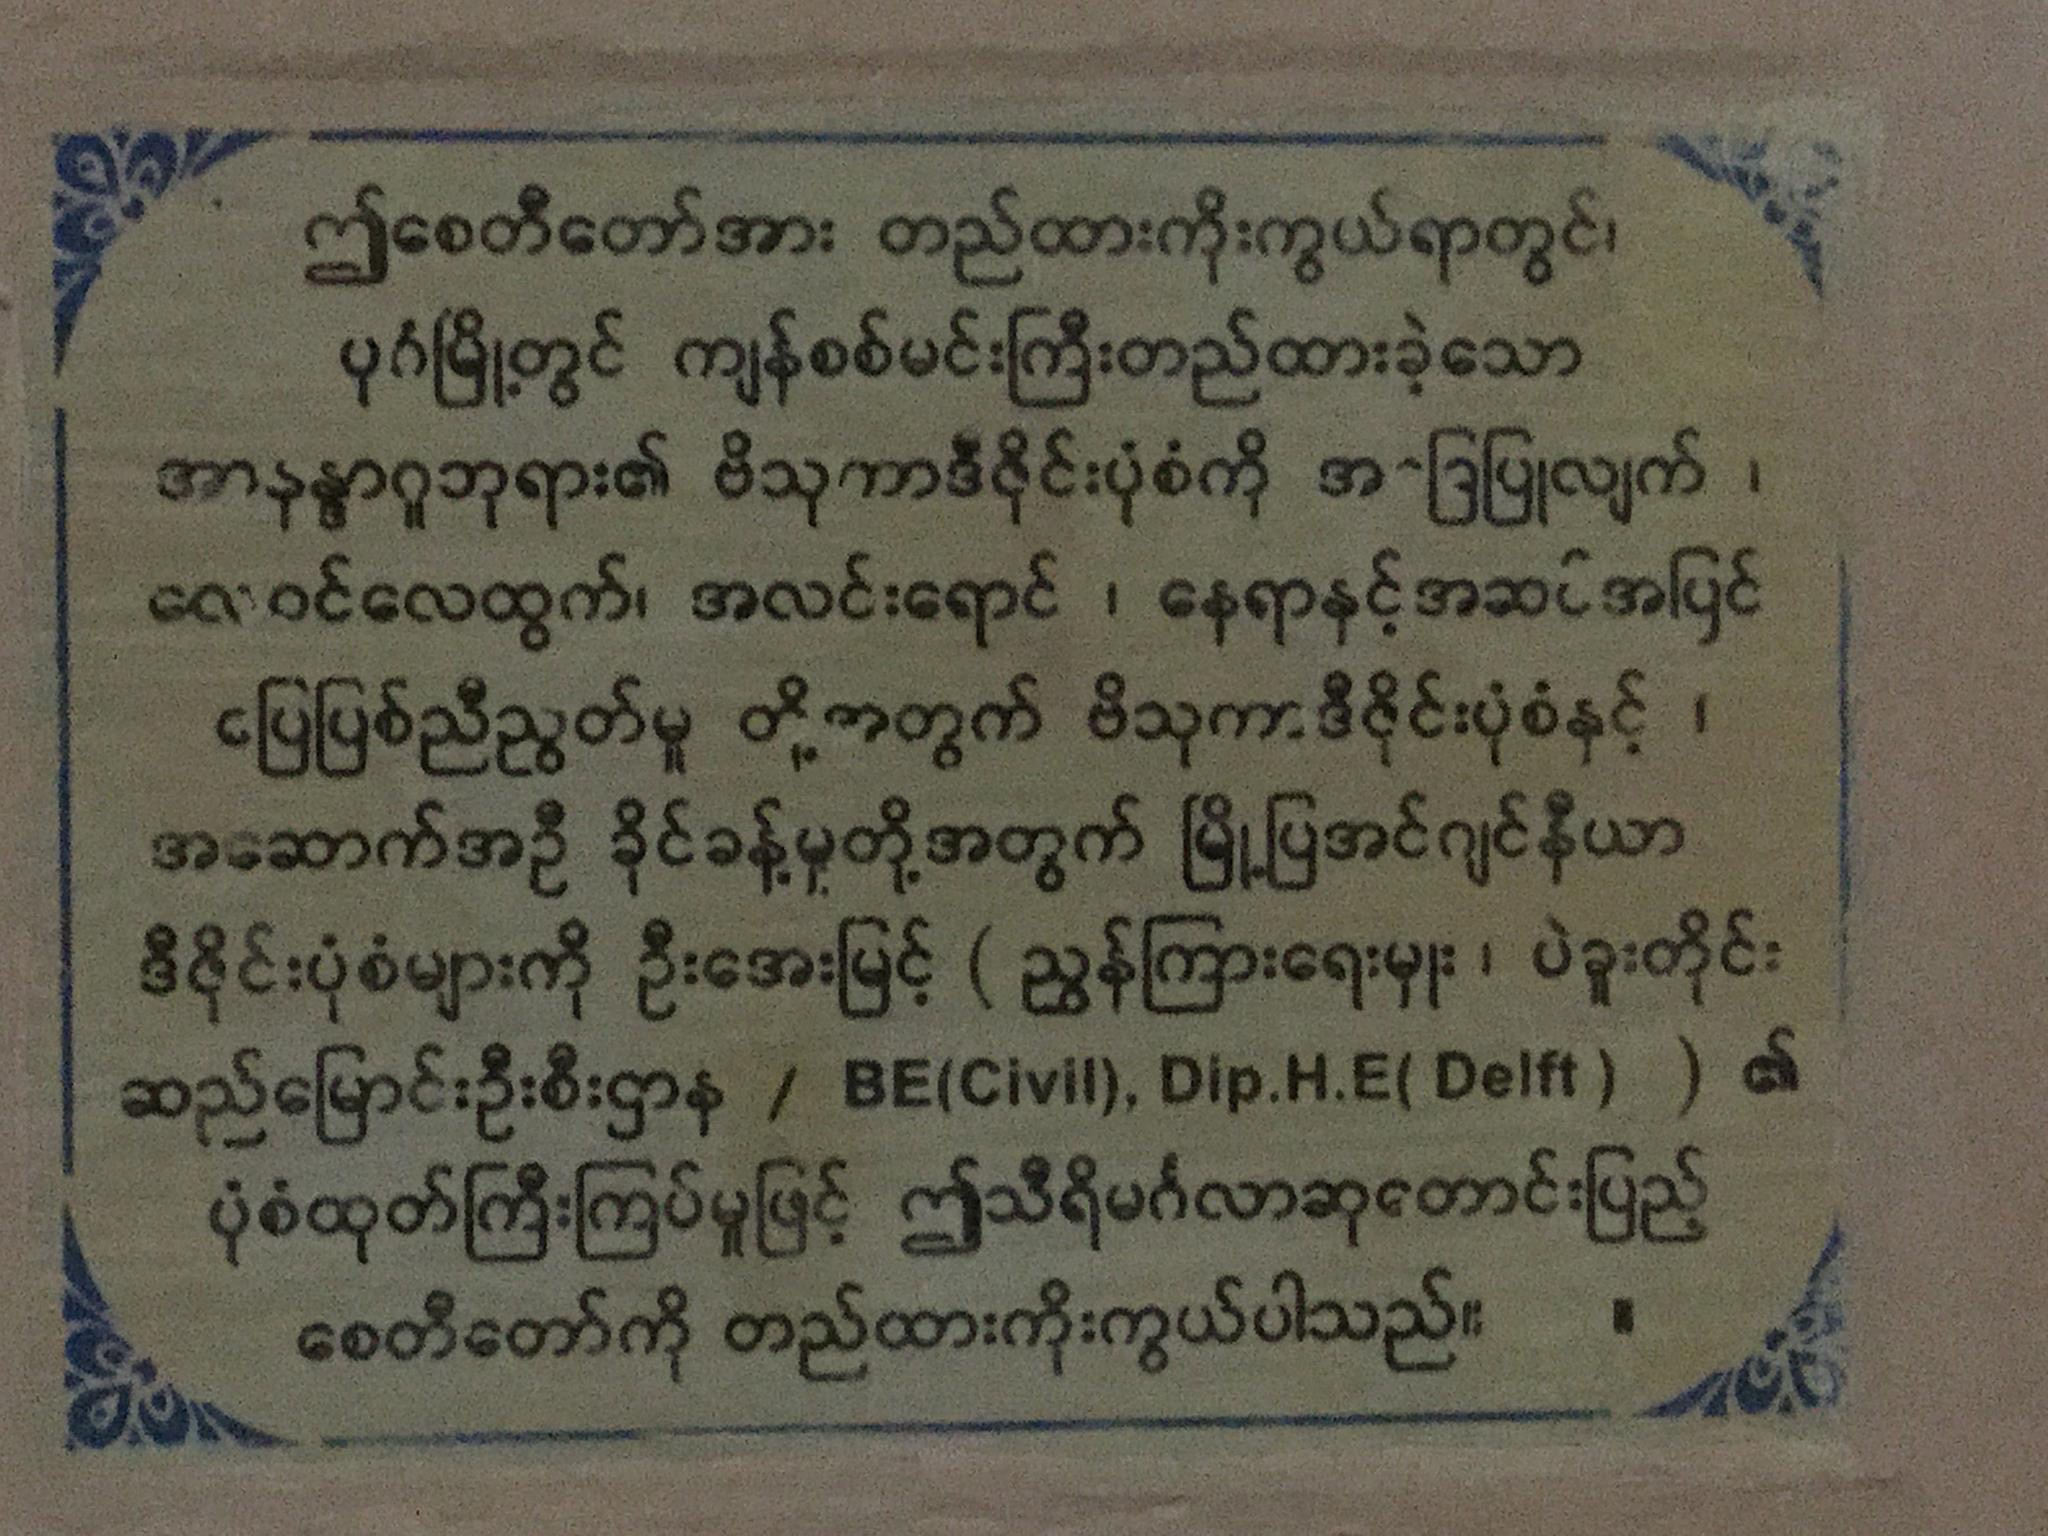 ဤစေတီတော်အား တည်ထားကိုးကွယ်ရာတွင်၊
ပုဂံမြို့တွင် ကျန်စစ်မင်းကြီးတည်ထားခဲ့သော
အာနန္ဒာဂူဘုရား၏ ဗိသုကာဒီဇိုင်းပုံစံကို ပြုလျက် ၊
လေဝင်လေထွက်၊ အလင်းရောင် ၊ နေရာနှင့်အဆင်အပြင်
ပြေပြစ်ညီညွတ်မှု တို့အတွက် ဗိသုကာဒီဇိုင်းပုံစံနှင့် ၊
အဆောက်အဦ ခိုင်ခန့်မှုတို့အတွက် မြို့ပြအင်ဂျင်နီယာ
ဒီဇိုင်းပုံစံများကို ဦးအေးမြင့် ( ညွှန်ကြားရေးမှူး ၊ ပဲခူးတိုင်း
ဆည်မြောင်းဦးစီးဌာန / BE(Civil), Dip.H.E( Delft ) ) ၏
ပုံစံထုတ်ကြီးကြပ်မှုဖြင့် ဤသီရိမင်္ဂလာဆုတောင်းပြည့်
စေတီတော်ကို တည်ထားကိုးကွယ်ပါသည်။